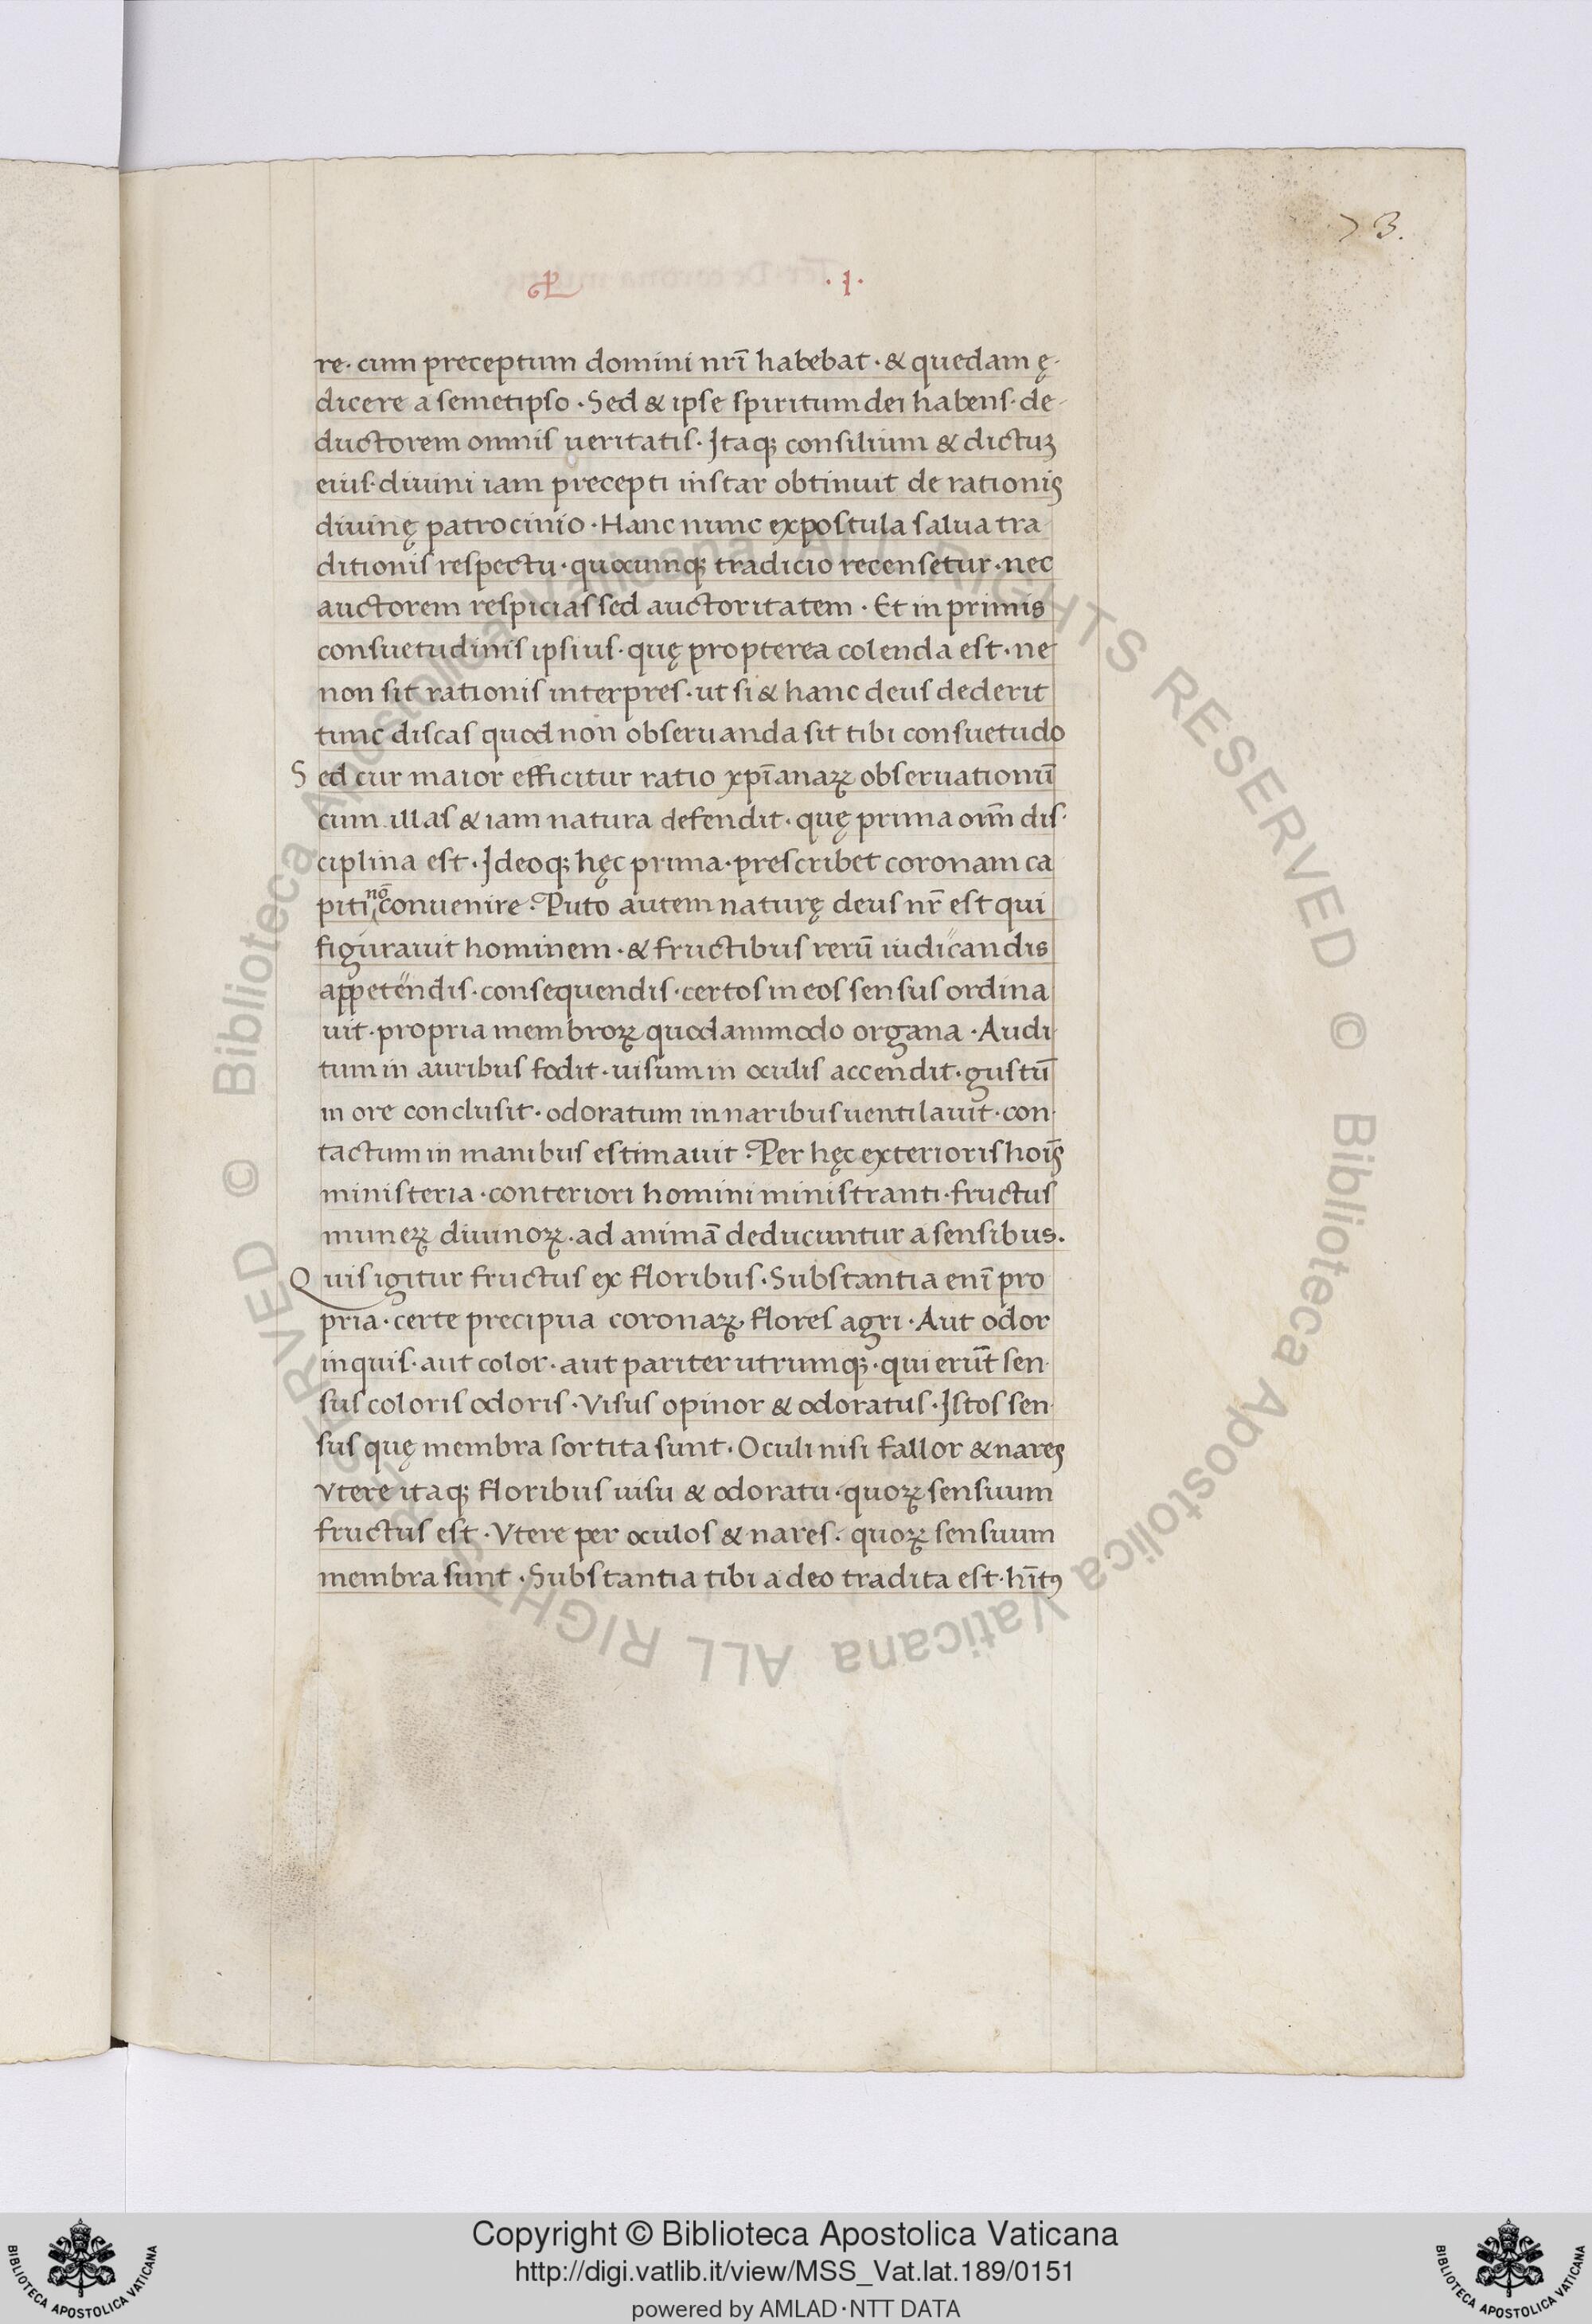 73.
.I.
re· cum preceptum domini nrī habebat · & quedam ę·
dicere a semetipso · Sed & ipse spiritum dei habens· de-
ductorem omnis ueritatis· Itaqꝫ consilium & dictuꝫ
eius· diuini iam precepti instar obtinuit de rationis
diuinę patrocinio · Hanc nunc expostula salua tra
ditionis respectu · quocumqꝫ tradicio recensetur · nec
auctorem respicias sed auctoritatem · Et in primis
consuetudinis ipsius · quę propterea colenda est · ne
non sit rationis interpres · ut si & hanc deus dederit
tunc discas quod non obseruanda sit tibi consuetudo
Sed cur maior efficitur ratio xp̄ianaꝝ obseruationū
cum illas & iam natura defendit · quę prima om̄ dis·
ciplina est · Ideoqꝫ hęc prima · prescribet coronam ca
piti nō conuenire · Puto autem naturę deus nr̄ est qui
figurauit hominem · & fructibus rerū iudicandis
appetendis · consequendis · certos in eos sensus ordina
uit · propria membroꝝ quodammodo organa · Audi
tum in auribus fodit · uisum in oculis accendit · gustū
in ore conclusit · odoratum in naribus uentilauit · con·
tactum in manibus estimauit · Per hęc exterioris hoīs
ministeria · conteriori homini ministranti · fructus
muneꝝ diuinoꝝ · ad animā deducuntur a sensibus.
Quis igitur fructus ex floribus · Substantia enī pro
pria · certe precipua coronaꝝ flores agri · Aut odor
inquis · aut color · aut pariter utrumqꝫ · qui erūt sen·
sus coloris odoris · Visus opinor & odoratus · Istos sen·
sus quę membra sortita sunt · Oculi nisi fallor & nares
Vtere itaqꝫ floribus uisu & odoratu · quoꝝ sensuum
fructus est · Vtere per oculos & nares · quoꝝ sensuum
membra sunt · Substantia tibi a deo tradita est · hītꝰ
© Biblioteca Apostolica Vaticana ALL RIGHTS RESERVED
© Biblioteca Apostolica Vaticana ALL RIGHTS RESERVED
Copyright © Biblioteca Apostolica Vaticana
http://digi.vatlib.it/view/MSS_Vat.lat.189/0151
powered by AMLAD·NTT DATA
BIBLIOTECA APOSTOLICA VATICANA
BIBLIOTECA APOSTOLICA VATICANA